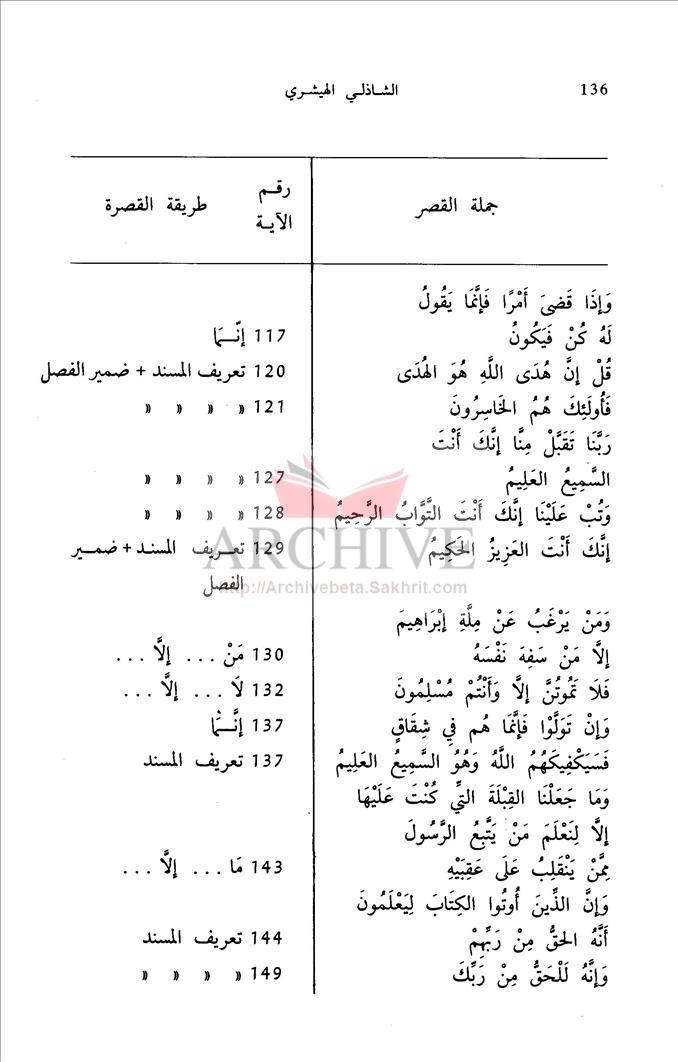 136 الشاذلي الهيشري
جملة القصر رقم الآية طريقة القصرة
وَإِذَا قَضىَ أَمْرًا فَإِنَّمَا يَقُولُ
لَهُ كُنْ فَيَكُونُ 117 إنَّـمَا
قُلْ إِنَّ هُدَى اللَّهِ هُوَ الهُدَى 120 تعريف المسند + ضمير الفصل
فَأُولَئِكَ هُمُ الخَاسِرُونَ 121 » » » »
رَبَّنَا تَقَبَّلْ مِنَّا إِنَّكَ أَنْتَ
السَّمِيعُ العَلِيمُ 127 » » » »
وَتُبْ عَلَيْنَا إِنَّكَ أَنْتَ التَّوَّابُ الرَّحِيمُ 128 » » » »
إِنَّكَ أَنْتَ العَزِيزُ الحَكِيمُ 129 تعريف المسند + ضمير
الفصل
ARCHIVE
http://Archivebeta.Sakhrit.com
وَمَنْ يَرْغَبُ عَنْ مِلَّةِ إِبْرَاهِيمَ
إِلاَّ مَنْ سَفِهَ نَفْسَهُ 130 مَنْ ... إلاَّ ...
فَلاَ تَمُوتُنَّ إِلاَّ وَأَنْتُمْ مُسْلِمُونَ 132 لاَ ... إلاَّ ...
وَإِنْ تَوَلَّوْا فَإِنَّمَا هُم فيِ شِقَاقٍ 137 إنَّـمَا
فَسَيَكْفِيكَهُمُ اللَّهُ وَهُوُ السَّمِيعُ العَلِيمُ 137 تعريف المسند
وَمَا جَعَلْنَا القِبْلَةَ التيِّ كُنْتَ عَلَيْهَا
إِلاَّ لِنَعْلَمَ مَنْ يَتَّبِعُ الرَّسُولَ
مِمَّنْ يَنْقَلِبُ عَلَى عَقِبَيْهِ 143 مَا ... إلاَّ ...
وَإِنَّ الذِّينَ أُوتُوا الكِتَابَ لِيَعْلَمُونَ
أَنَّهُ الحَقُّ مِنْ رَبِّهِمْ 144 تعريف المسند
وَإِنَّهُ لَلْحَقُّ مِنْ رَبِّكَ 149 » » » »